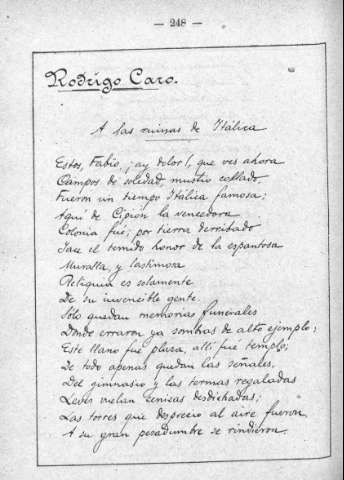 — 248 —
Rodrigo Caro.
A las ruinas de Itálica
Estos, Fabio, ¡ay dolor!, que ves ahora
Campos de soledad, mustio collado,
Fueron un tiempo Itálica famosa;
Aquí de Cipión la vencedora
Colonia fué; por tierra derribado
Yace el temido honor de la espantosa
Muralla, y lastimosa
Reliquia es solamente
De su invencible gente.
Sólo quedan memorias funerales
Donde erraron ya sombras de alto ejemplo;
Este llano fué plaza, allí fué templo;
De todo apenas quedan las señales,
Del gimnasio y las termas regaladas
Leves vuelan cenizas desdichadas;
Las torres que desprecio al aire fueron
A su gran pesadumbre se rindieron.